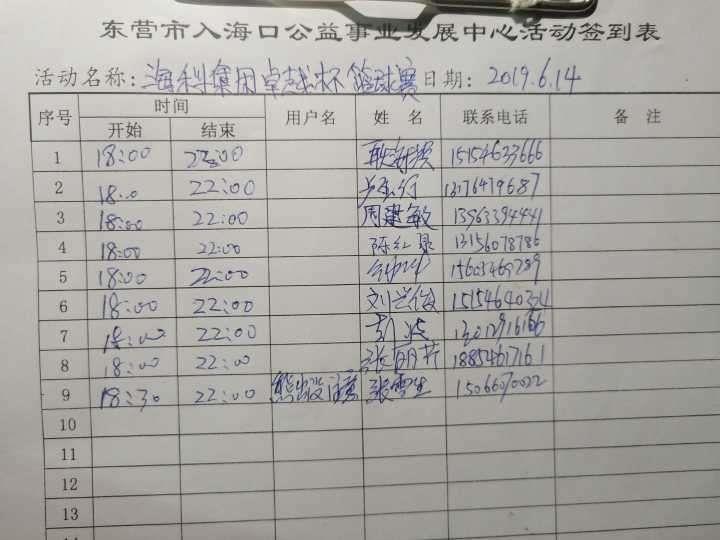 东营市入海口公益事业发展中心活动签到表
活动名称:海科集团卓越杯篮球赛 日期: 2019.6.14
序号 时间 用户名 姓 名 联系电话 备 注
开始 结束
1 18:00 22:00 15154633666
2 18:00 22:00 13176479687
3 18:00 22:00 周建敏 13963394441
4 18:00 22:00 陈红 13156078786
5 18:00 22:00
6 18:00 22:00 刘兴俊
7 18:00 22:00 彭波
8 18:00 22:00 张丽芹 18854617161
9 18:30 22:00 熊 张雪生 15066070022
10
11
12
13